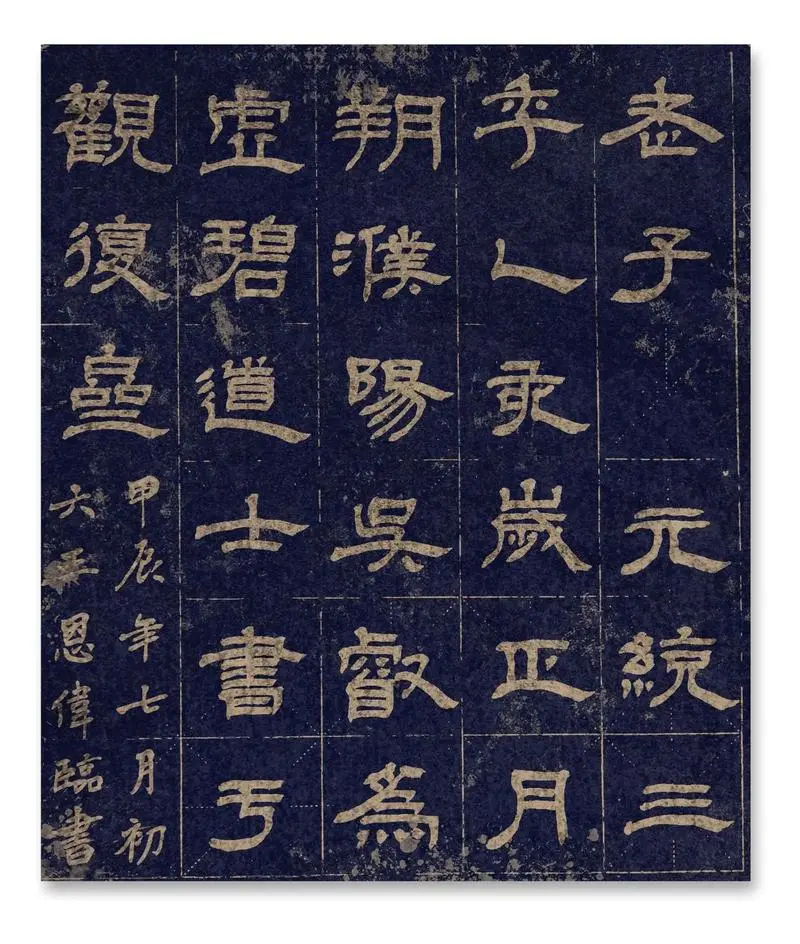 老子 元統三
年乙亥歲正月
朔濮陽吳叡為
虛碧道士書亏
觀復齋
甲辰年七月初
六 恩偉臨書